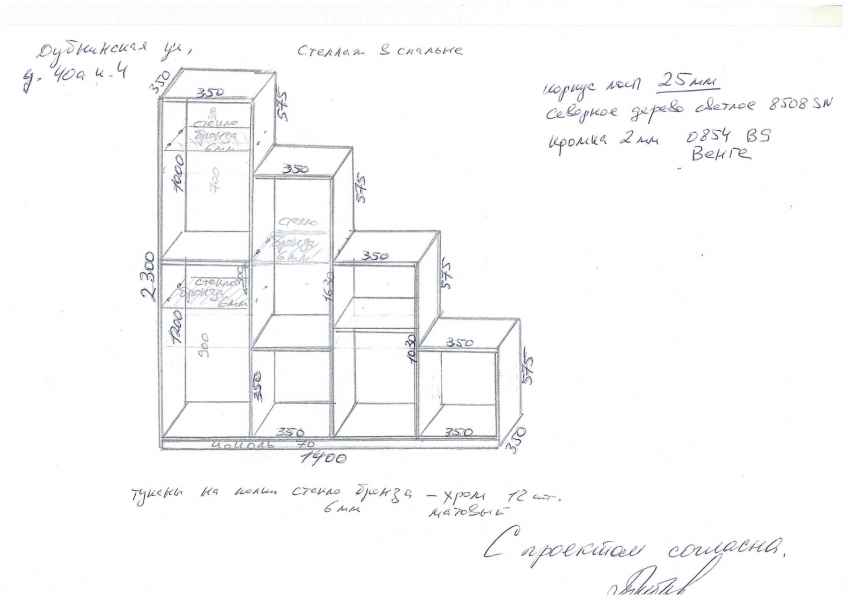 Дубнинская ул,
Стеллаж в спальне
д. 40а к. 4
корпус лдсп 25мм
Северное дерево светлое 8508 SN
кромка 2мм 0854 BS
Венге
350
350
575
стекло
бронза
6мм
1000
700
350
575
стекло
бронза
6мм
350
575
2300
стекло
бронза
6мм
1630
1200
900
350
1030
350
575
350
350
350
цоколь 70
1400
350
тукены на полки стекло бронза – хром 12 шт.
6мм матовый
С проектом согласна.